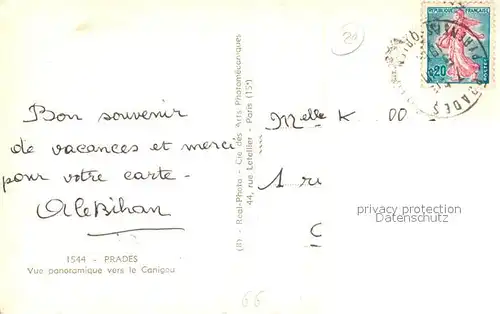 Bon souvenir
de vacances et merci
pour votre carte -
A Le Bihan
1544 - PRADES
Vue panoramique vers le Canigou
(R) - Real-Photo - Cie des Arts Photomécaniques
44, rue Letellier - Paris (15e)
REPUBLIQUE FRANÇAISE
0,20
POSTES
PRADES
Melle K OO
1 ru
C
privacy protection
Datenschutz
66